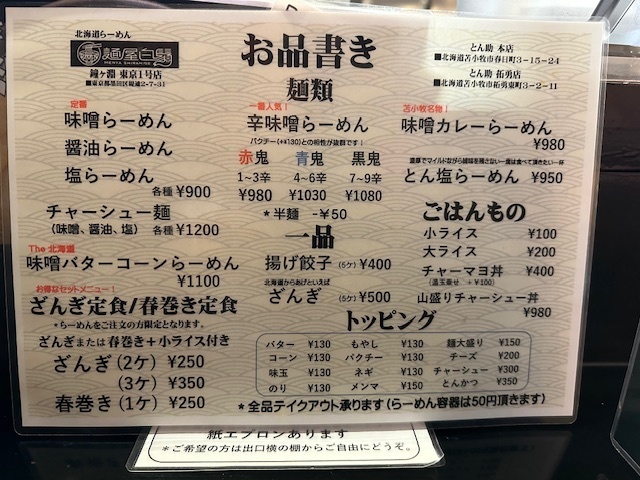 お品書き
北海道らーめん
麺屋白 
MENYA SHIRAKISE
鐘ヶ淵 東京1号店
■東京都墨田区墨堤2-7-31
とん助 本店
■北海道苫小牧市春日町3-15-24
とん助 拓勇店
■北海道苫小牧市拓勇東町3-2-11
麺類
定番
味噌らーめん
醤油らーめん
塩らーめん
各種 ¥900
チャーシュー麺
(味噌、醤油、塩) 各種 ¥1200
The 北海道
味噌バターコーンらーめん
¥1100
お得なセットメニュー!
ざんぎ定食/春巻き定食
*らーめんをご注文の方限定となります。
ざんぎまたは春巻き+小ライス付き
ざんぎ (2ケ) ¥250
(3ケ) ¥350
春巻き (1ケ) ¥250
一番人気!
辛味噌らーめん
パクチー(+¥130)との相性が抜群です!
赤鬼 青鬼 黒鬼
1~3辛 4~6辛 7~9辛
¥980 ¥1030 ¥1080
*半麺 -¥50
一品
揚げ餃子 (5ケ) ¥400
北海道からあげといえば
ざんぎ (5ケ) ¥500
苫小牧名物!
味噌カレーらーめん
¥980
濃厚でマイルドながら後味を残さない一度は食べて頂きたい一杯
とん塩らーめん ¥950
ごはんもの
小ライス ¥100
大ライス ¥200
チャーマヨ丼 ¥400
(温玉乗せ +¥100)
山盛りチャーシュー丼
¥980
トッピング
バター ¥130 もやし ¥130 麺大盛り ¥150
コーン ¥130 パクチー ¥130 チーズ ¥200
味玉 ¥130 ネギ ¥130 チャーシュー ¥300
のり ¥130 メンマ ¥150 とんかつ ¥350
*全品テイクアウト承ります(らーめん容器は50円頂きます)
紙エプロンあります
*ご希望の方は出口横の棚からご自由にどうぞ。